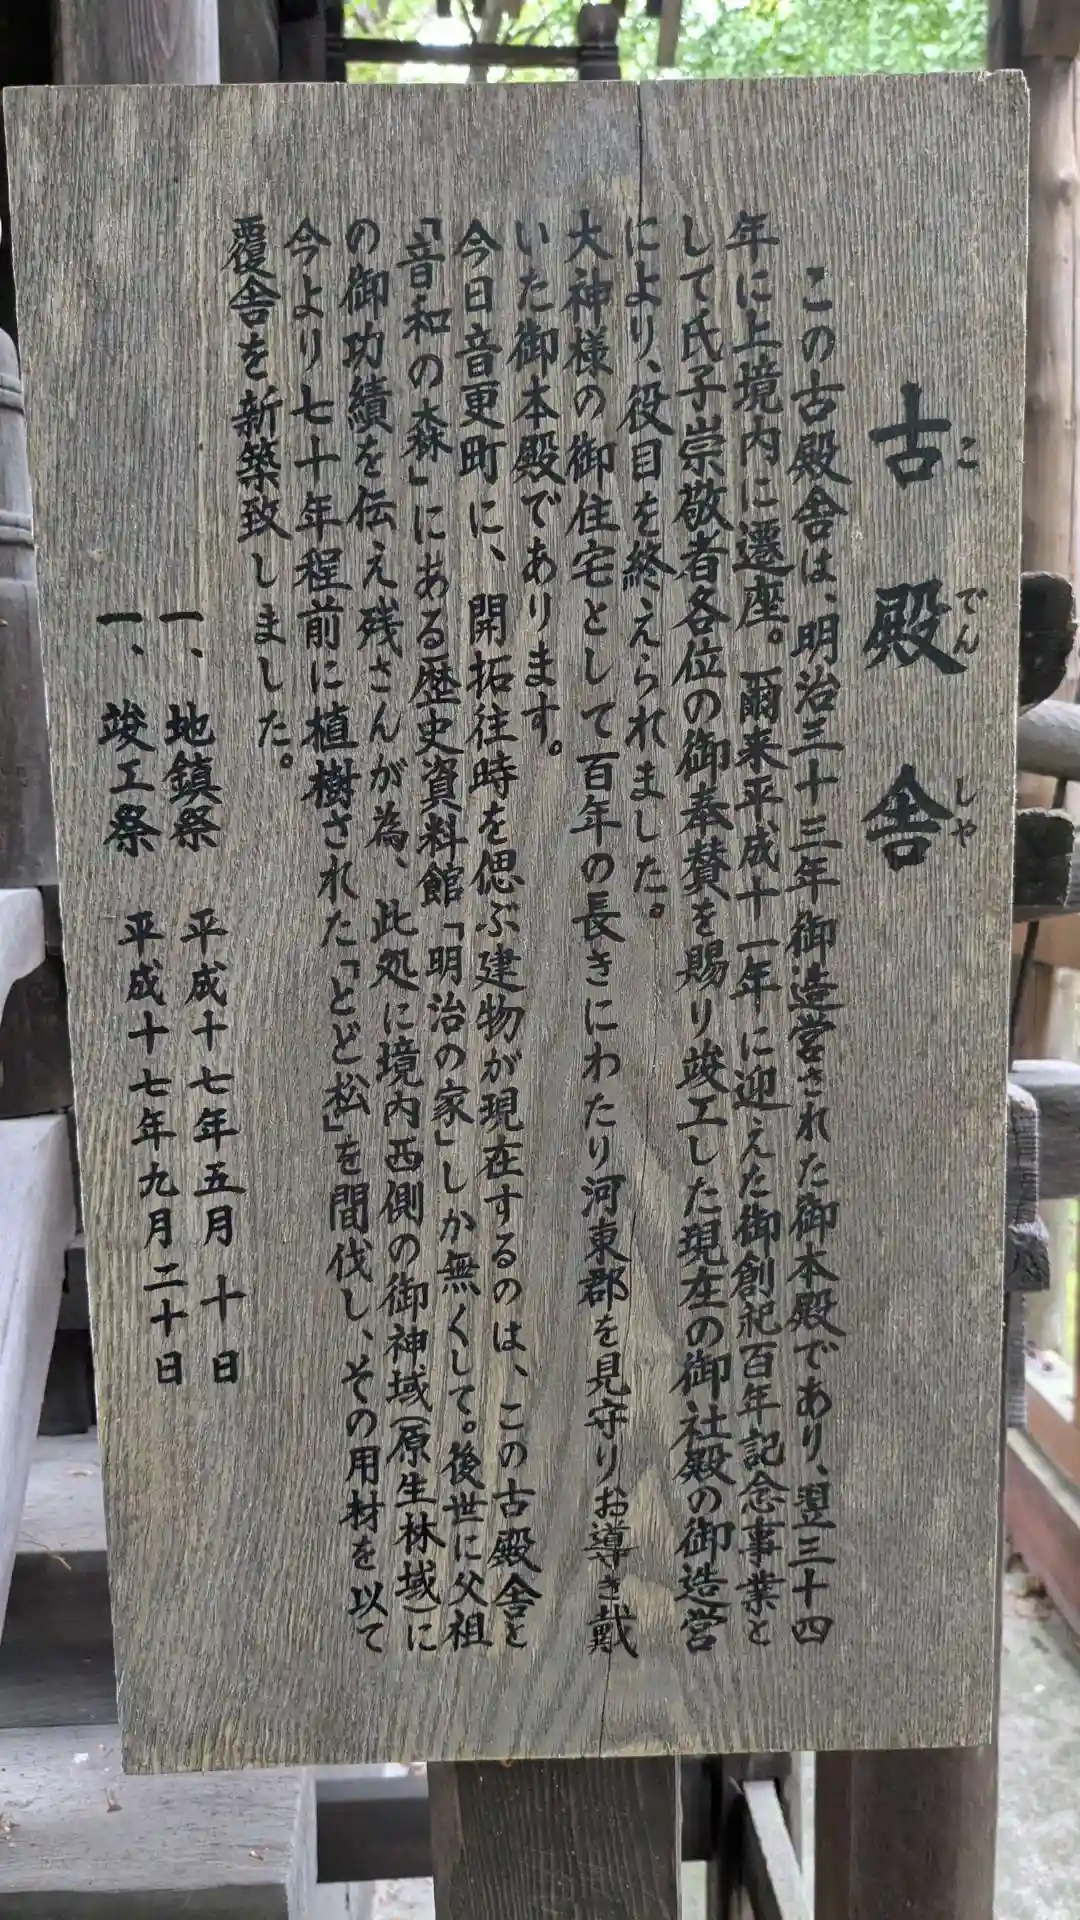 古殿舎
こでんしや
この古殿舎は、明治三十三年御造営された御本殿であり、翌三十四
年に上境内に遷座。爾来平成十一年に迎えた御創祀百年記念事業と
して氏子崇敬者各位の御奉賛を賜り竣工した現在の御社殿の御造営
により、役目を終えられました。
大神様の御住宅として百年の長きにわたり河東郡を見守りお導き戴
いた御本殿であります。
今日音更町に、開拓往時を偲ぶ建物が現在するのは、この古殿舎と
「音和の森」にある歴史資料館「明治の家」しか無くして。後世に父祖
の御功績を伝え残さんが為、此処に境内西側の御神域(原生林域)に
今より七十年程前に植樹された「とど松」を間伐し、その用材を以て
覆舎を新築致しました。
一、地鎮祭 平成十七年五月 十日
一、竣工祭 平成十七年九月二十日